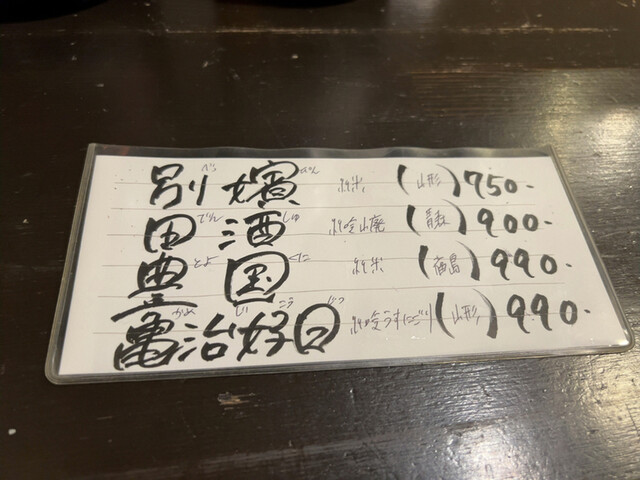 別嬪 べっぴん 純米 (山形) 750-
田酒 でんしゅ 純吟山廃 (青森) 900-
豊国 とよくに 純米 (福島) 990-
亀治好日 かめじこうじつ 純吟うすにごり (山形) 990-